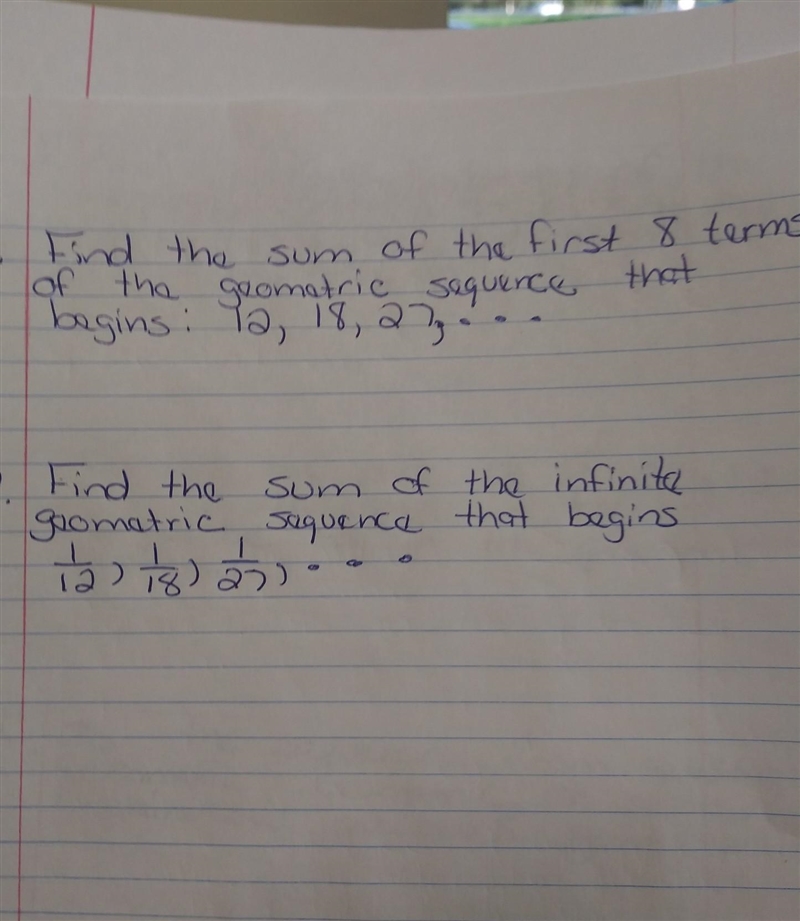 Find the sum of the first 8 terms
of the geometric sequence that
begins: 12, 18, 27, . . .
Find the sum of the infinite
geometric sequence that begins
1/12, 1/18, 1/27, . . .